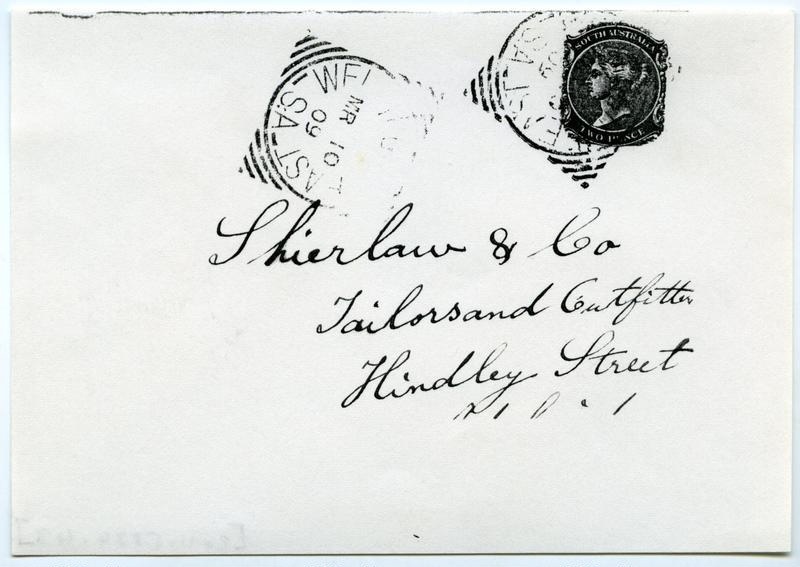 SOUTH AUSTRALIA
TWO PENCE
MR 10
09
S.A.
Shierlaw & Co
Tailorsand Outfitter
Hindley Street